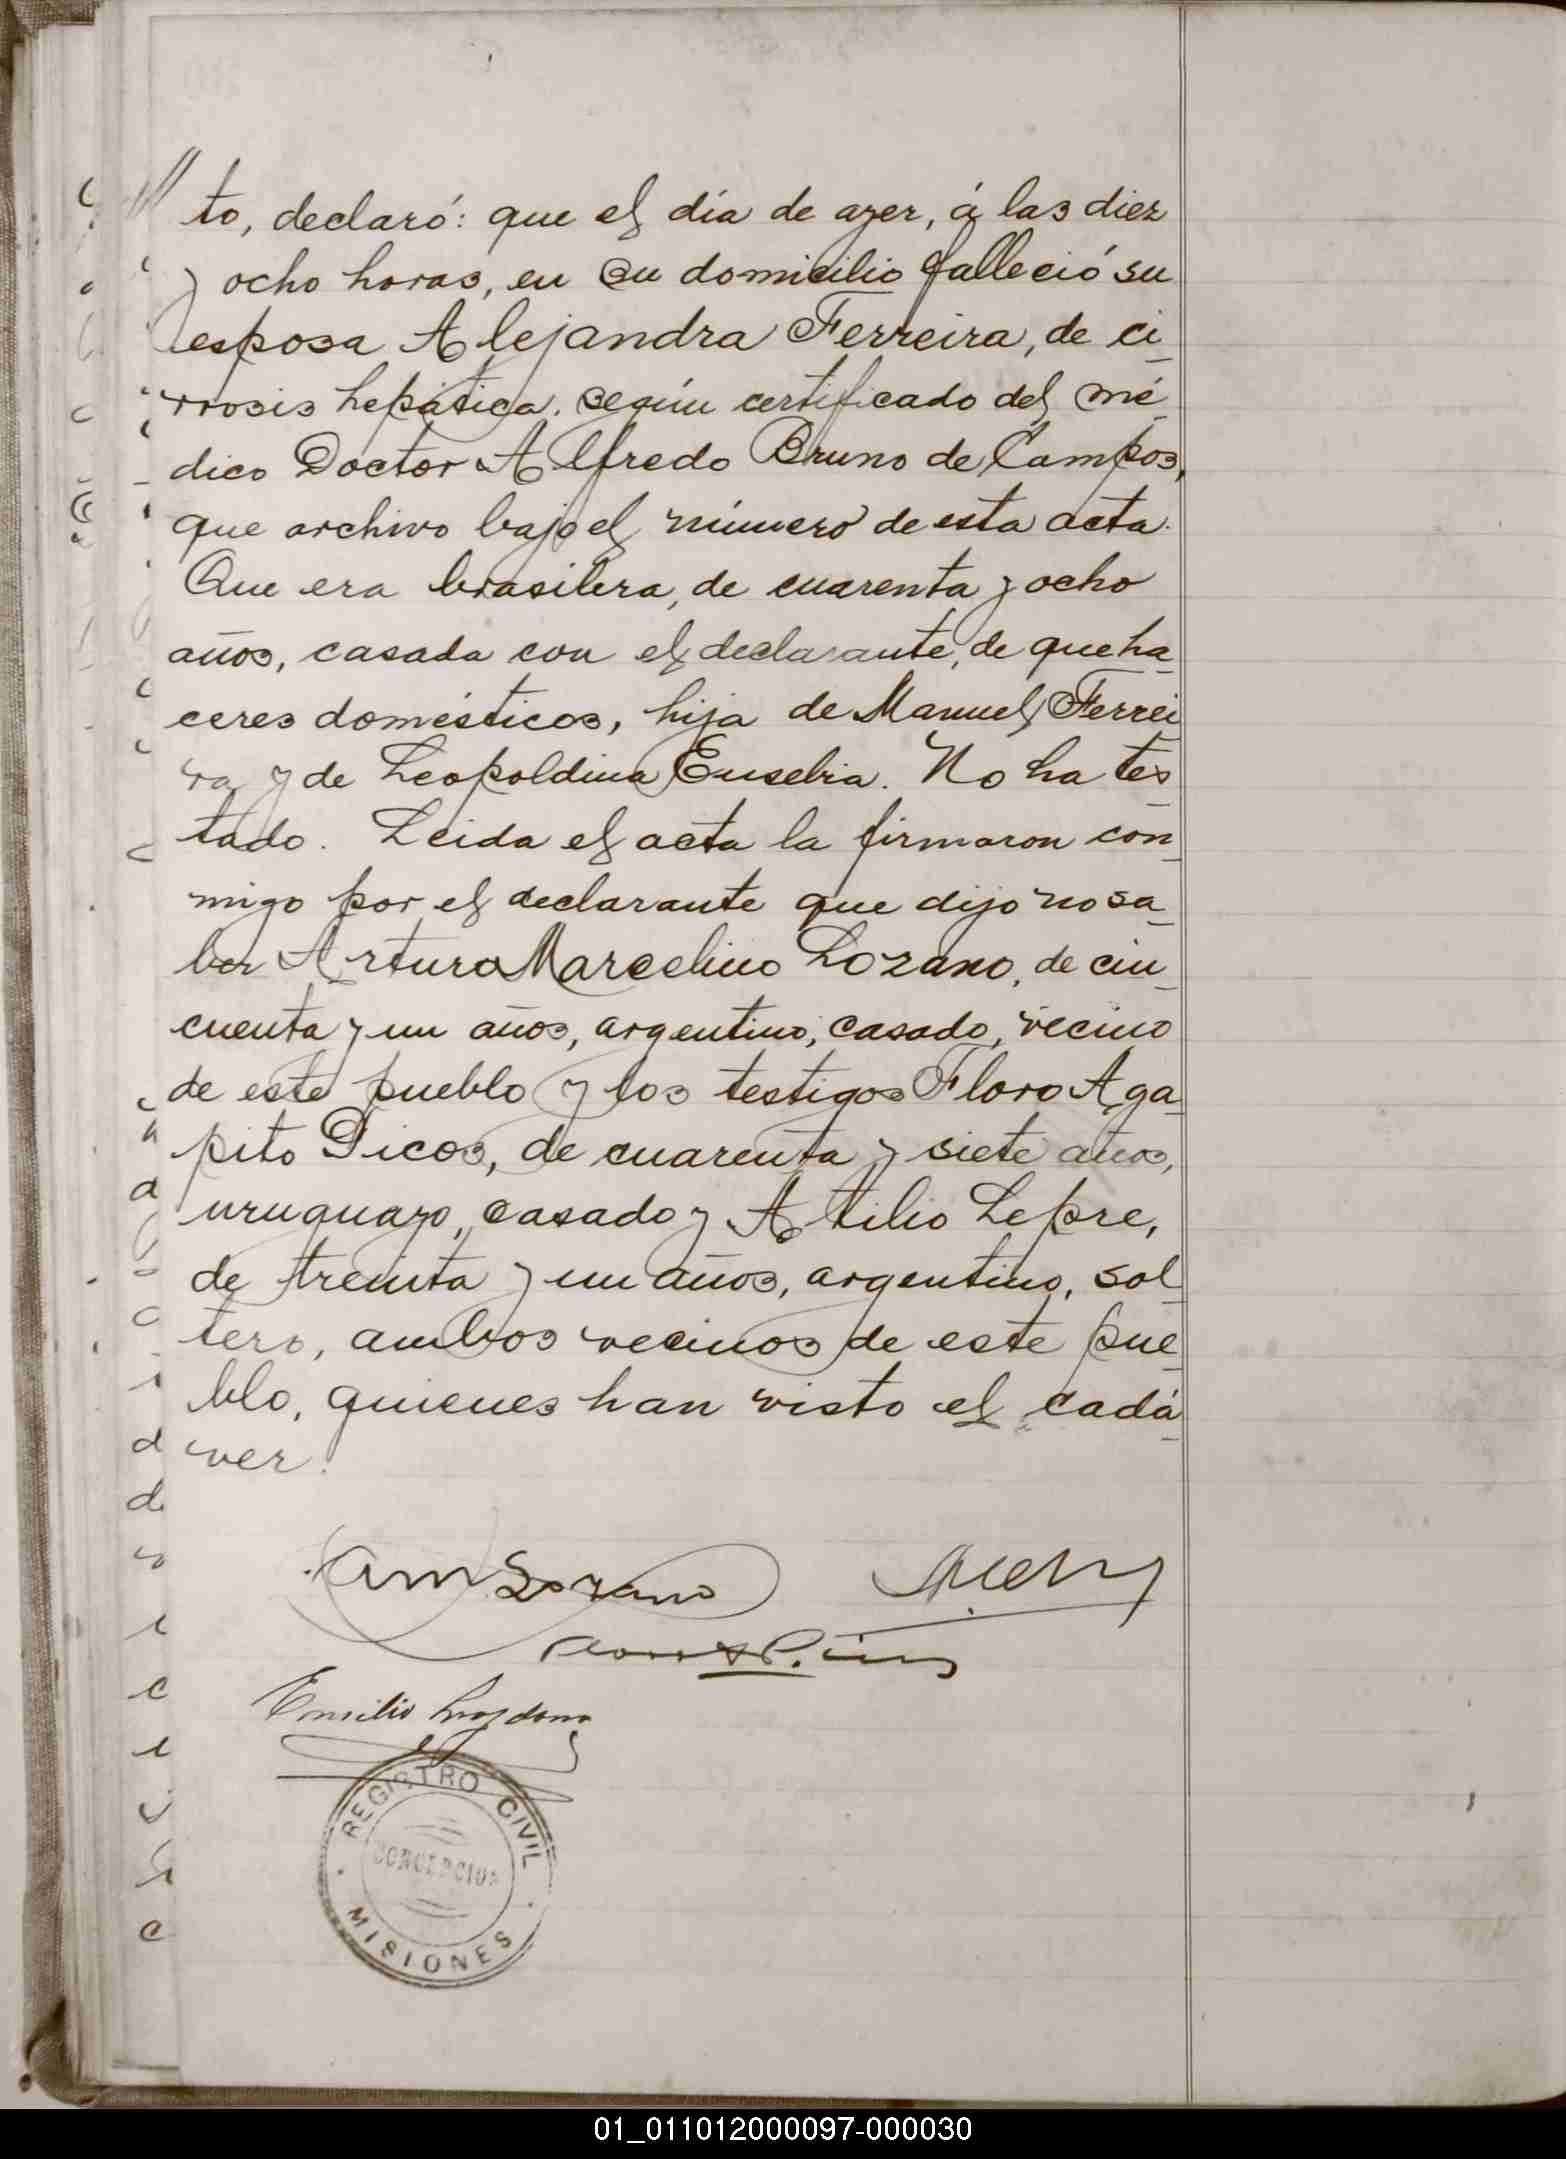 to, declaró: que el día de ayer, á las diez
y ocho horas, en su domicilio falleció su
esposa Alejandra Ferreira, de ci-
rrosis hepática. según certificado del mé-
dico Doctor Alfredo Bruno de Campos,
que archivo bajo el número de esta acta.
Que era brasilera, de cuarenta y ocho
años, casada con el declarante, de queha-
ceres domésticos, hija de Manuel Ferrei-
ra y de Leopoldina Eusebia. No ha tes-
tado. Leida el acta la firmaron con-
migo por el declarante que dijo no sa-
ber Arturo Marcelino Lozano, de cin-
cuenta y un años, argentino, casado, vecino
de este pueblo y los testigos Floro Aga-
pito Picos, de cuarenta y siete años,
uruguayo, casado y Atilio Lepre,
de treinta y un años, argentino, sol-
tero, ambos vecinos de este pue-
blo, quienes han visto el cadá-
ver.
Am Lozano
Emilio
REGISTRO CIVIL
CONCEPCION
MISIONES
01_011012000097-000030